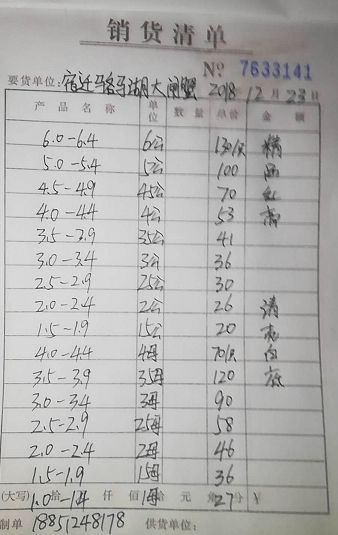 销货清单
No 7633141
要货单位：宿迁骆马湖大闸蟹 2018年12月23日
产品名称 单位 数量 单价 金额
6.0-6.4 6公 130/只 横
5.0-5.4 5公 100 画
4.5-4.9 45公 70
4.0-4.4 4公 53
3.5-3.9 35公 41
3.0-3.4 3公 36
2.5-2.9 25公 30
2.0-2.4 2公 26 清
1.5-1.9 15公 20
4.0-4.4 4母 70/只 白
3.5-3.9 35母 120 底
3.0-3.4 3母 90
2.5-2.9 25母 58
2.0-2.4 2母 46
1.5-1.9 15母 36
(大写) 拾 仟 佰 拾 元 角 分 ¥
1.0-1.4 1母 27
制单 18851248178 供货单位：